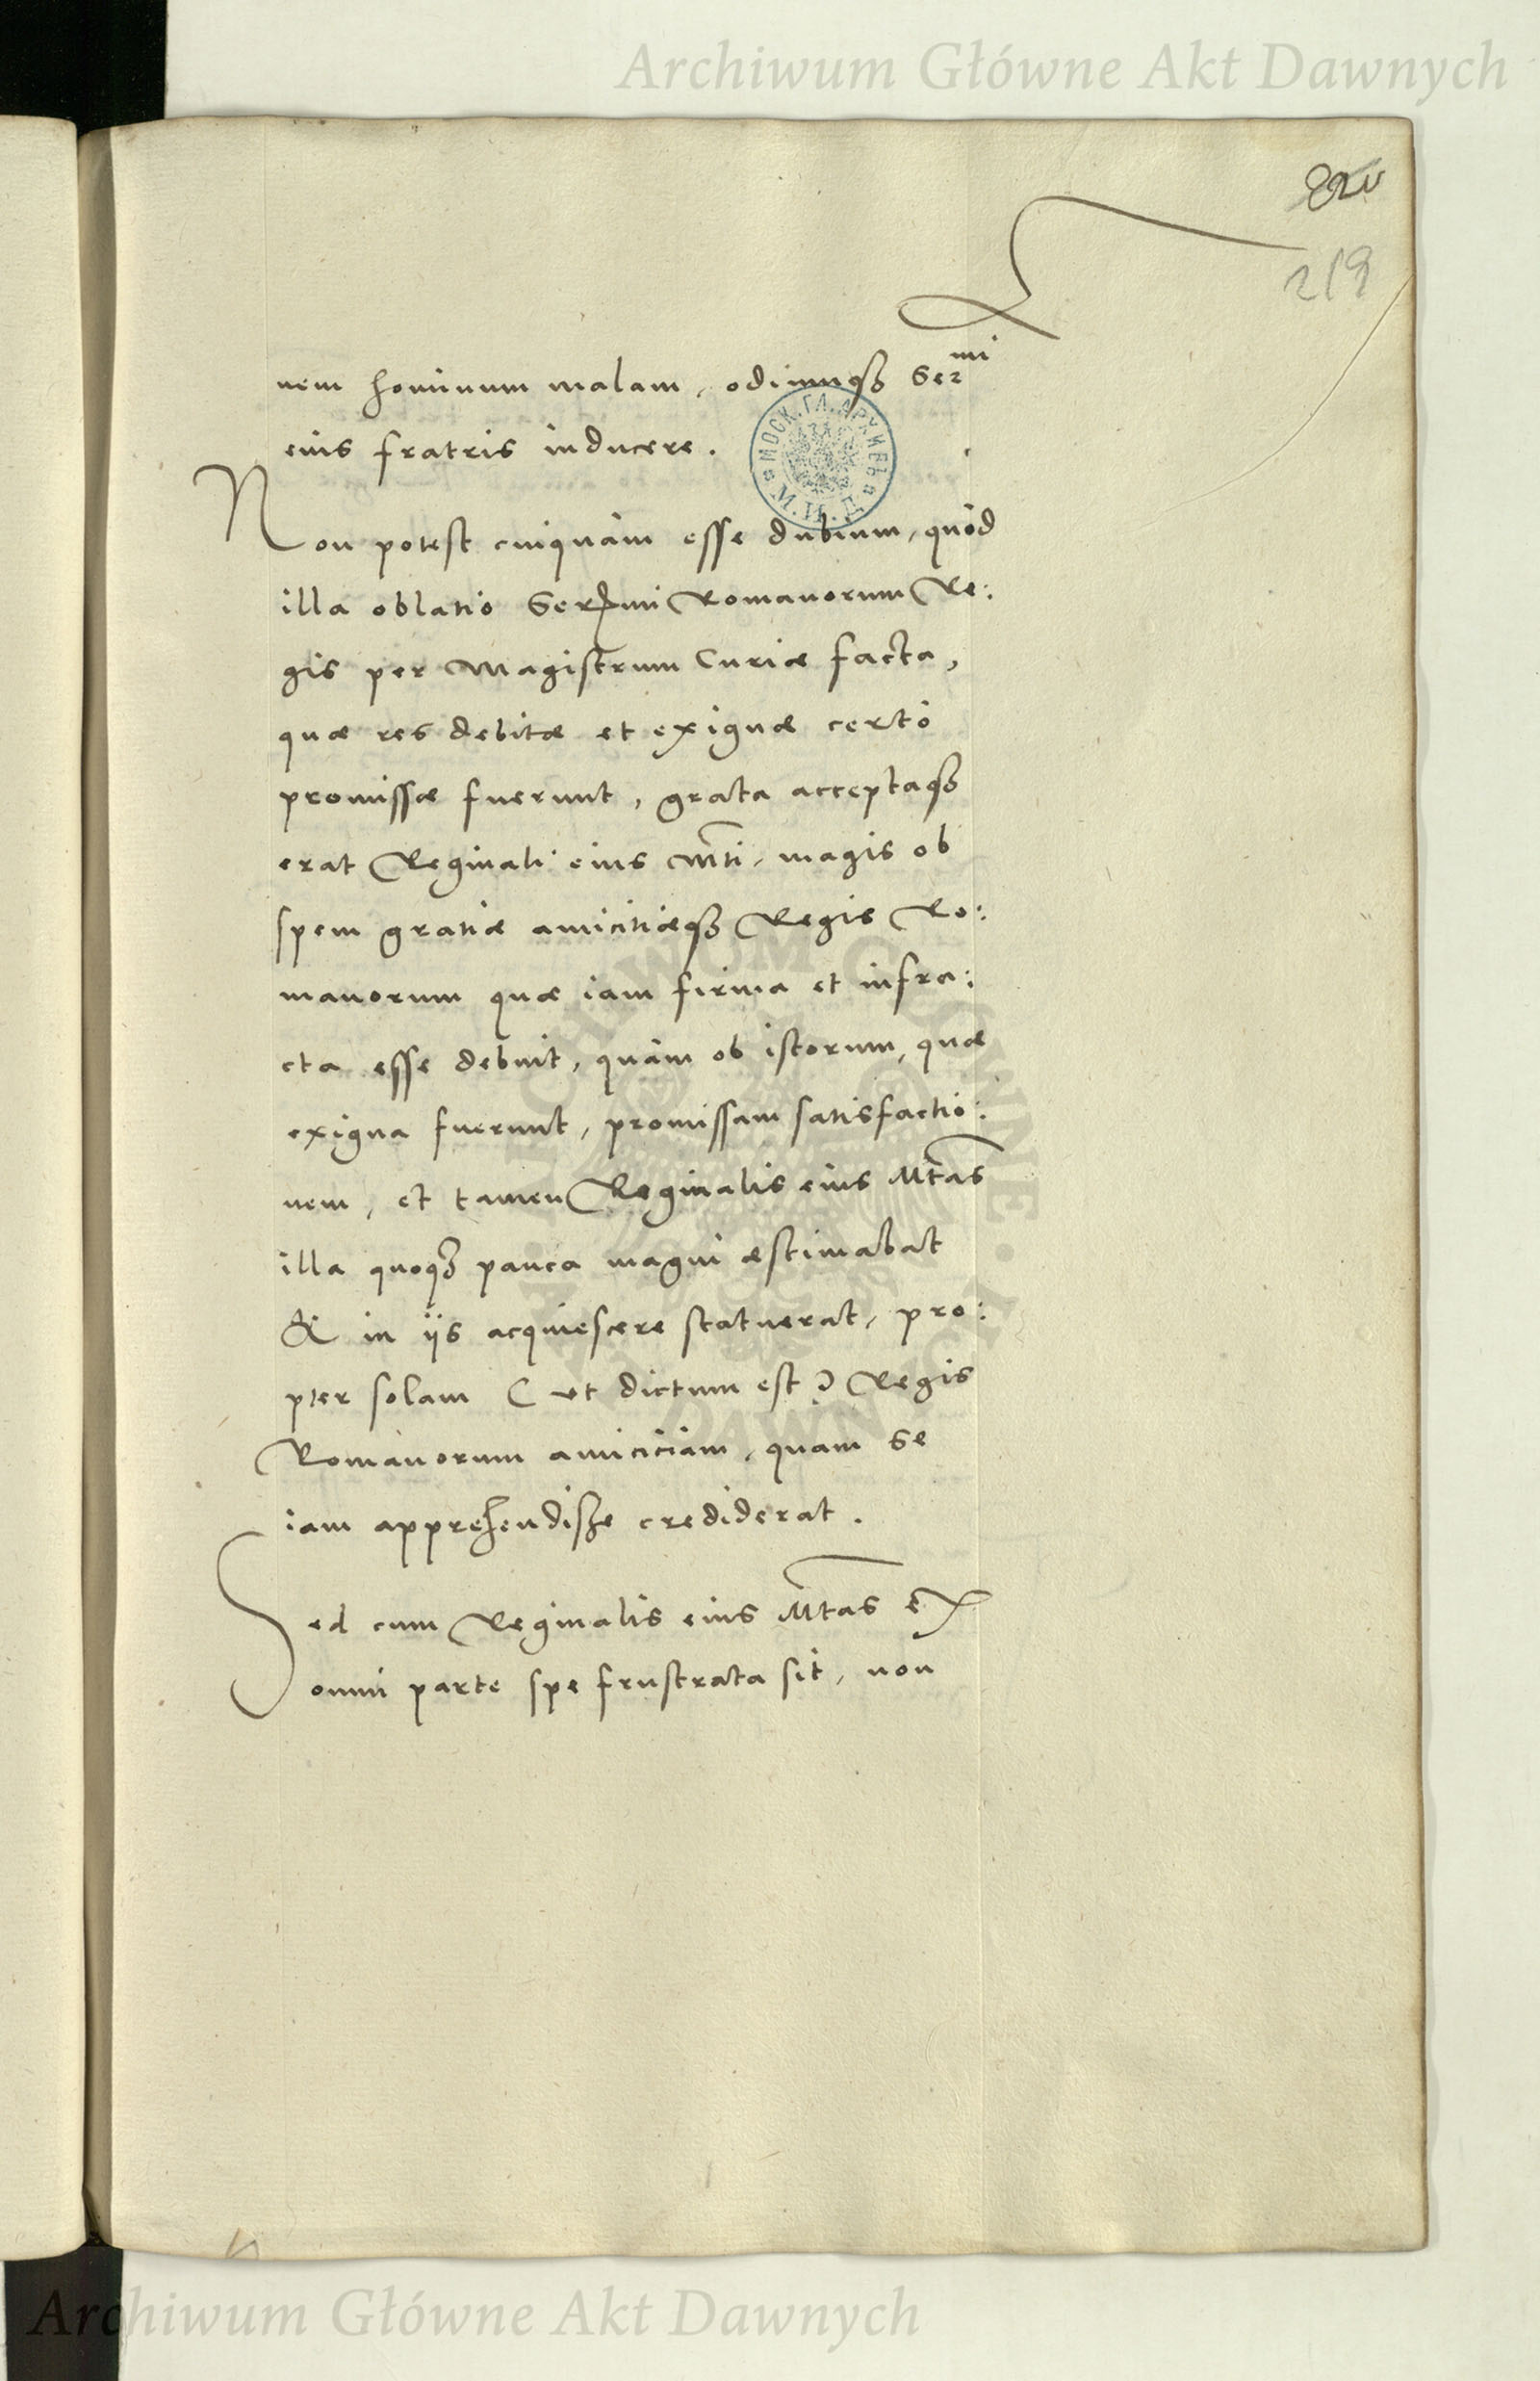 Archiwum Główne Akt Dawnych
219
nem hominum malam, odiumq₃ Serᵐⁱ
eius fratris inducere.
МОСК. ГЛ. АРХИВЪ М. И. Д.
Non potest cuiquàm esse dubium, quòd
illa oblatio Serмi Romanorum Re:
gis per Magistrum Curiæ facta,
quæ res debitæ et exiguæ certò
promissæ fuerunt, grata acceptaq₃
erat Reginali eius Mti, magis ob
spem gratiæ amicitiæq₃ Regis Ro:
manorum quæ iam firma et infra:
cta esse debuit, quàm ob istorum, quæ
exigua fuerunt, promissam satisfactio:
nem, et tamen Reginalis eius Mtas
illa quoq₃ pauca magni æstimabat
& in ijs acquiescere statuerat, pro:
pter solam (ut dictum est) Regis
Romanorum amiciciam, quam se
iam apprehendisse crediderat.
Sed cum Reginalis eius Mtas ex
omni parte spe frustrata sit, non
ARCHIWUM GŁÓWNE AKT DAWNYCH
Archiwum Główne Akt Dawnych